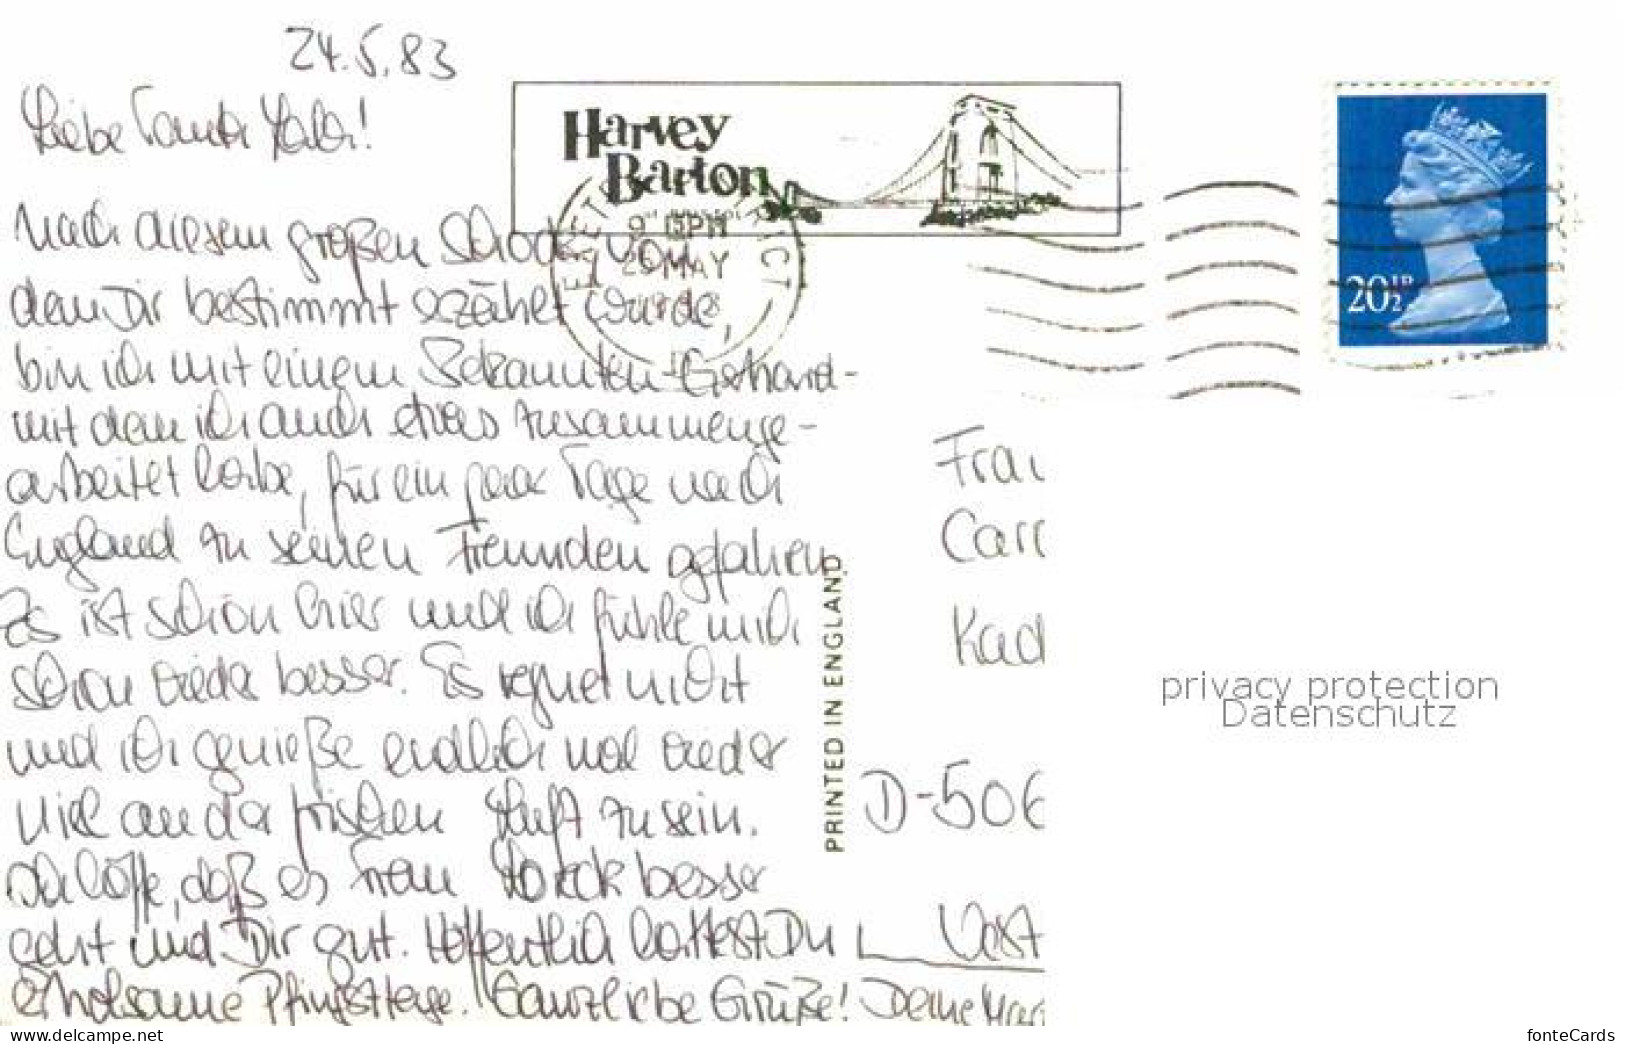 24.5.83
Liebe Tante
Harvey
Barton
Nach diesem großen Schock, von
dem Dir bestimmt erzählt wurde,
bin ich mit einem Bekannten - Gerhard -
mit dem ich auch etwas zusammenge-
arbeitet habe, für ein paar Tage nach
England zu seinen Freunden gefahren.
Es ist schön hier und ich fühle mich
schon wieder besser. Es regnet nicht
und ich genieße endlich mal wieder
viel an der frischen Luft zu sein.
Ich hoffe, daß es Frau besser
geht und Dir gut. Hoffentlich hattest Du
erholsame Pfingsttage. Ganz liebe Grüße! Deine
EXETER DISTRICT
9 15PM
25 MAY
20½P
PRINTED IN ENGLAND
Frau
Carr
Kad
D-506
West
privacy protection
Datenschutz
www.delcampe.net
fonteCards